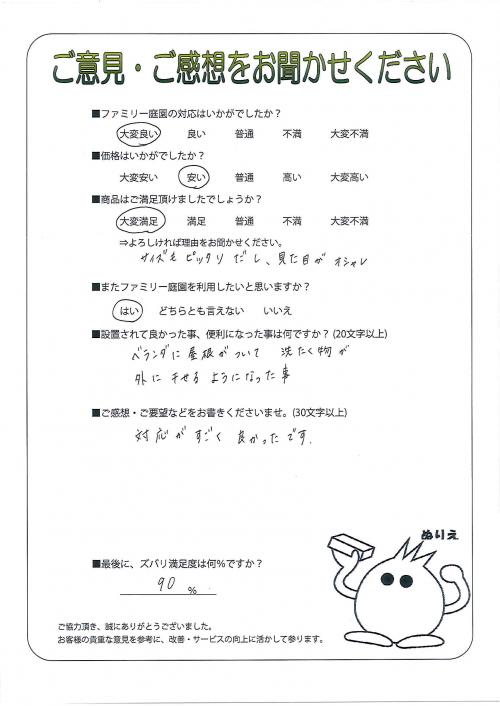 ご意見・ご感想をお聞かせください
■ファミリー庭園の対応はいかがでしたか？
大変良い 良い 普通 不満 大変不満
■価格はいかがでしたか？
大変安い 安い 普通 高い 大変高い
■商品はご満足頂けましたでしょうか？
大変満足 満足 普通 不満 大変不満
⇒よろしければ理由をお聞かせください。
サイズもピッタリだし、見た目がオシャレ
■またファミリー庭園を利用したいと思いますか？
はい どちらとも言えない いいえ
■設置されて良かった事、便利になった事は何ですか？(20文字以上)
ベランダに屋根がついて 洗たく物が
外に干せるようになった事
■ご感想・ご要望などをお書きくださいませ。(30文字以上)
対応がすごく良かったです.
ぬりえ
■最後に、ズバリ満足度は何％ですか？
90 %
ご協力頂き、誠にありがとうございました。
お客様の貴重な意見を参考に、改善・サービスの向上に活かして参ります。